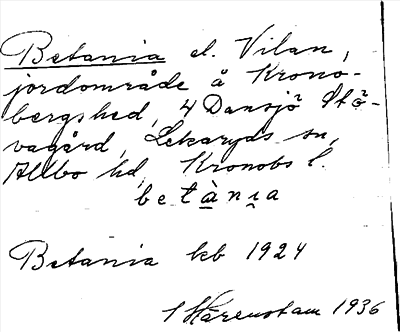 Betania el. Vilan,
jordområde å Krono-
bergshed, 4 Dansjö Stö-
vagård, Lekaryds sn,
Allbo hd, Kronobs l.
betània
Betania kb 1924
Härenstam 1936